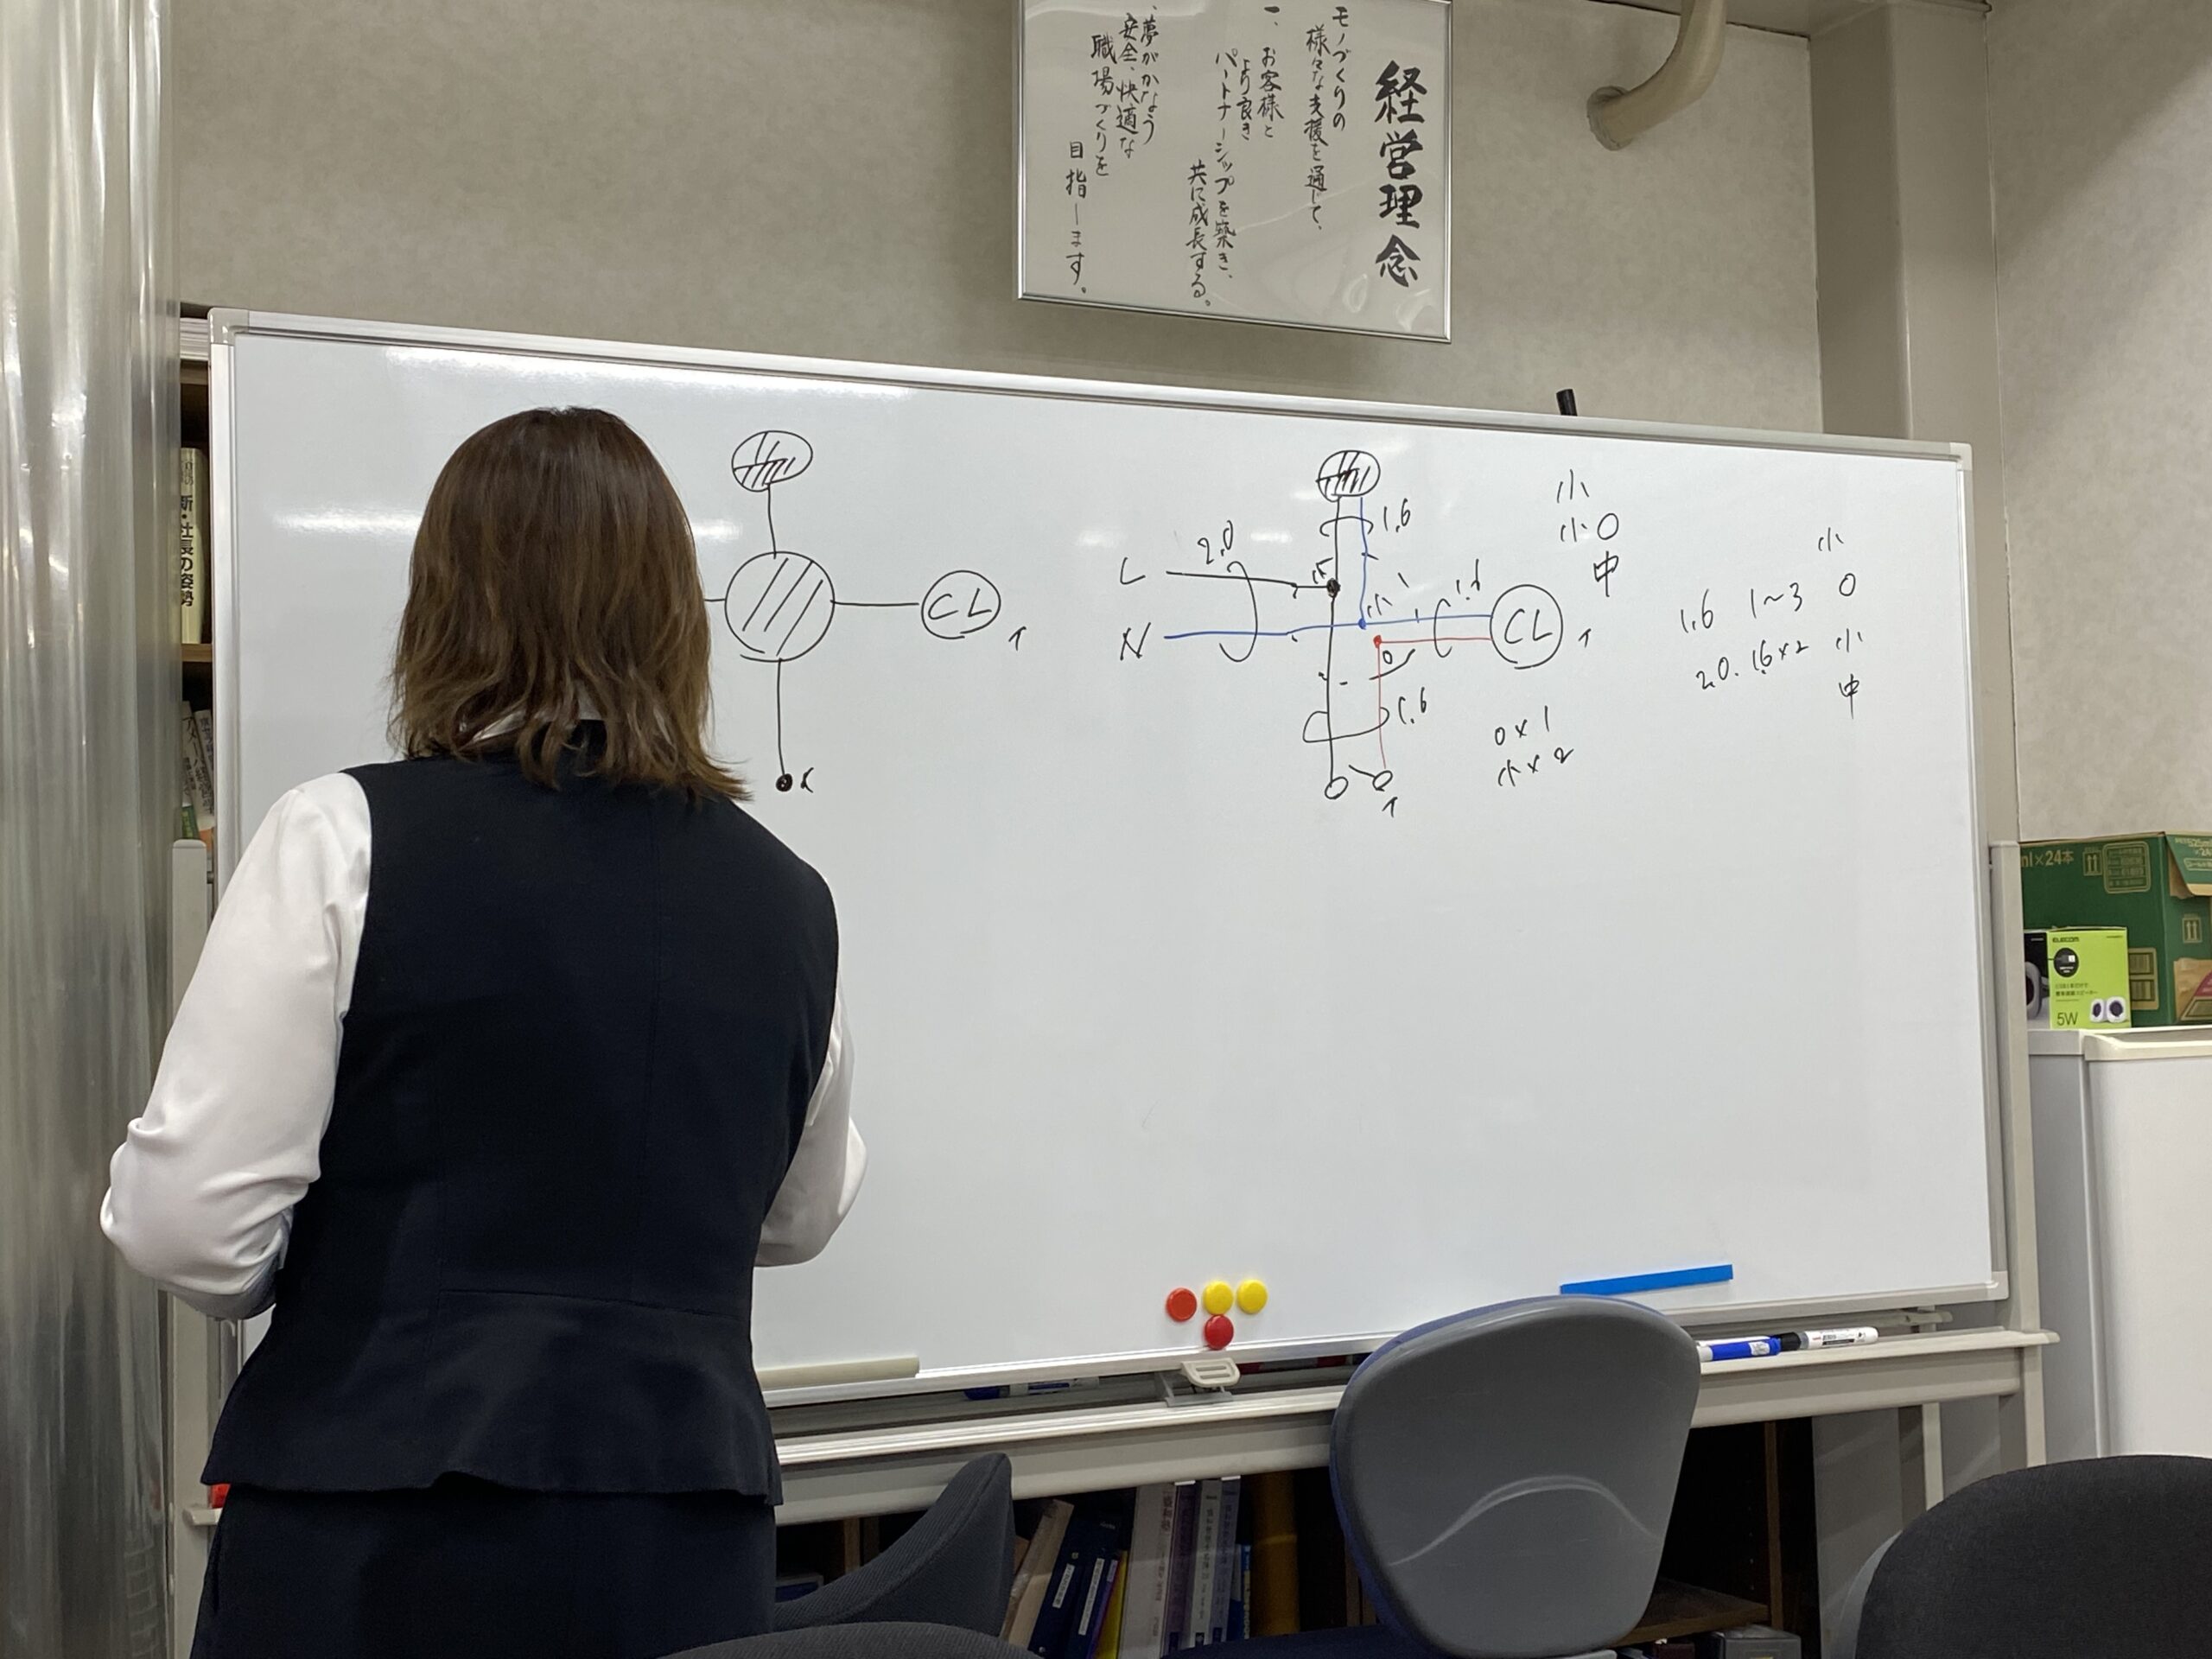 経営理念
モノづくりの
様々な支援を通じて、
一、お客様と
より良き
パートナーシップを築き、
共に成長する。
、夢がかなう
安全、快適な
職場づくりを
目指します。
CL
イ
イ
L
2.0
N
1.6
小
小
1.6
CL
イ
O
1.6
イ
O×1
小×2
小
小O
中
小
1.6 1~3 O
2.0. 1.6×2 小
中
新・社長の姿勢
ml×24本
ELECOM
5W